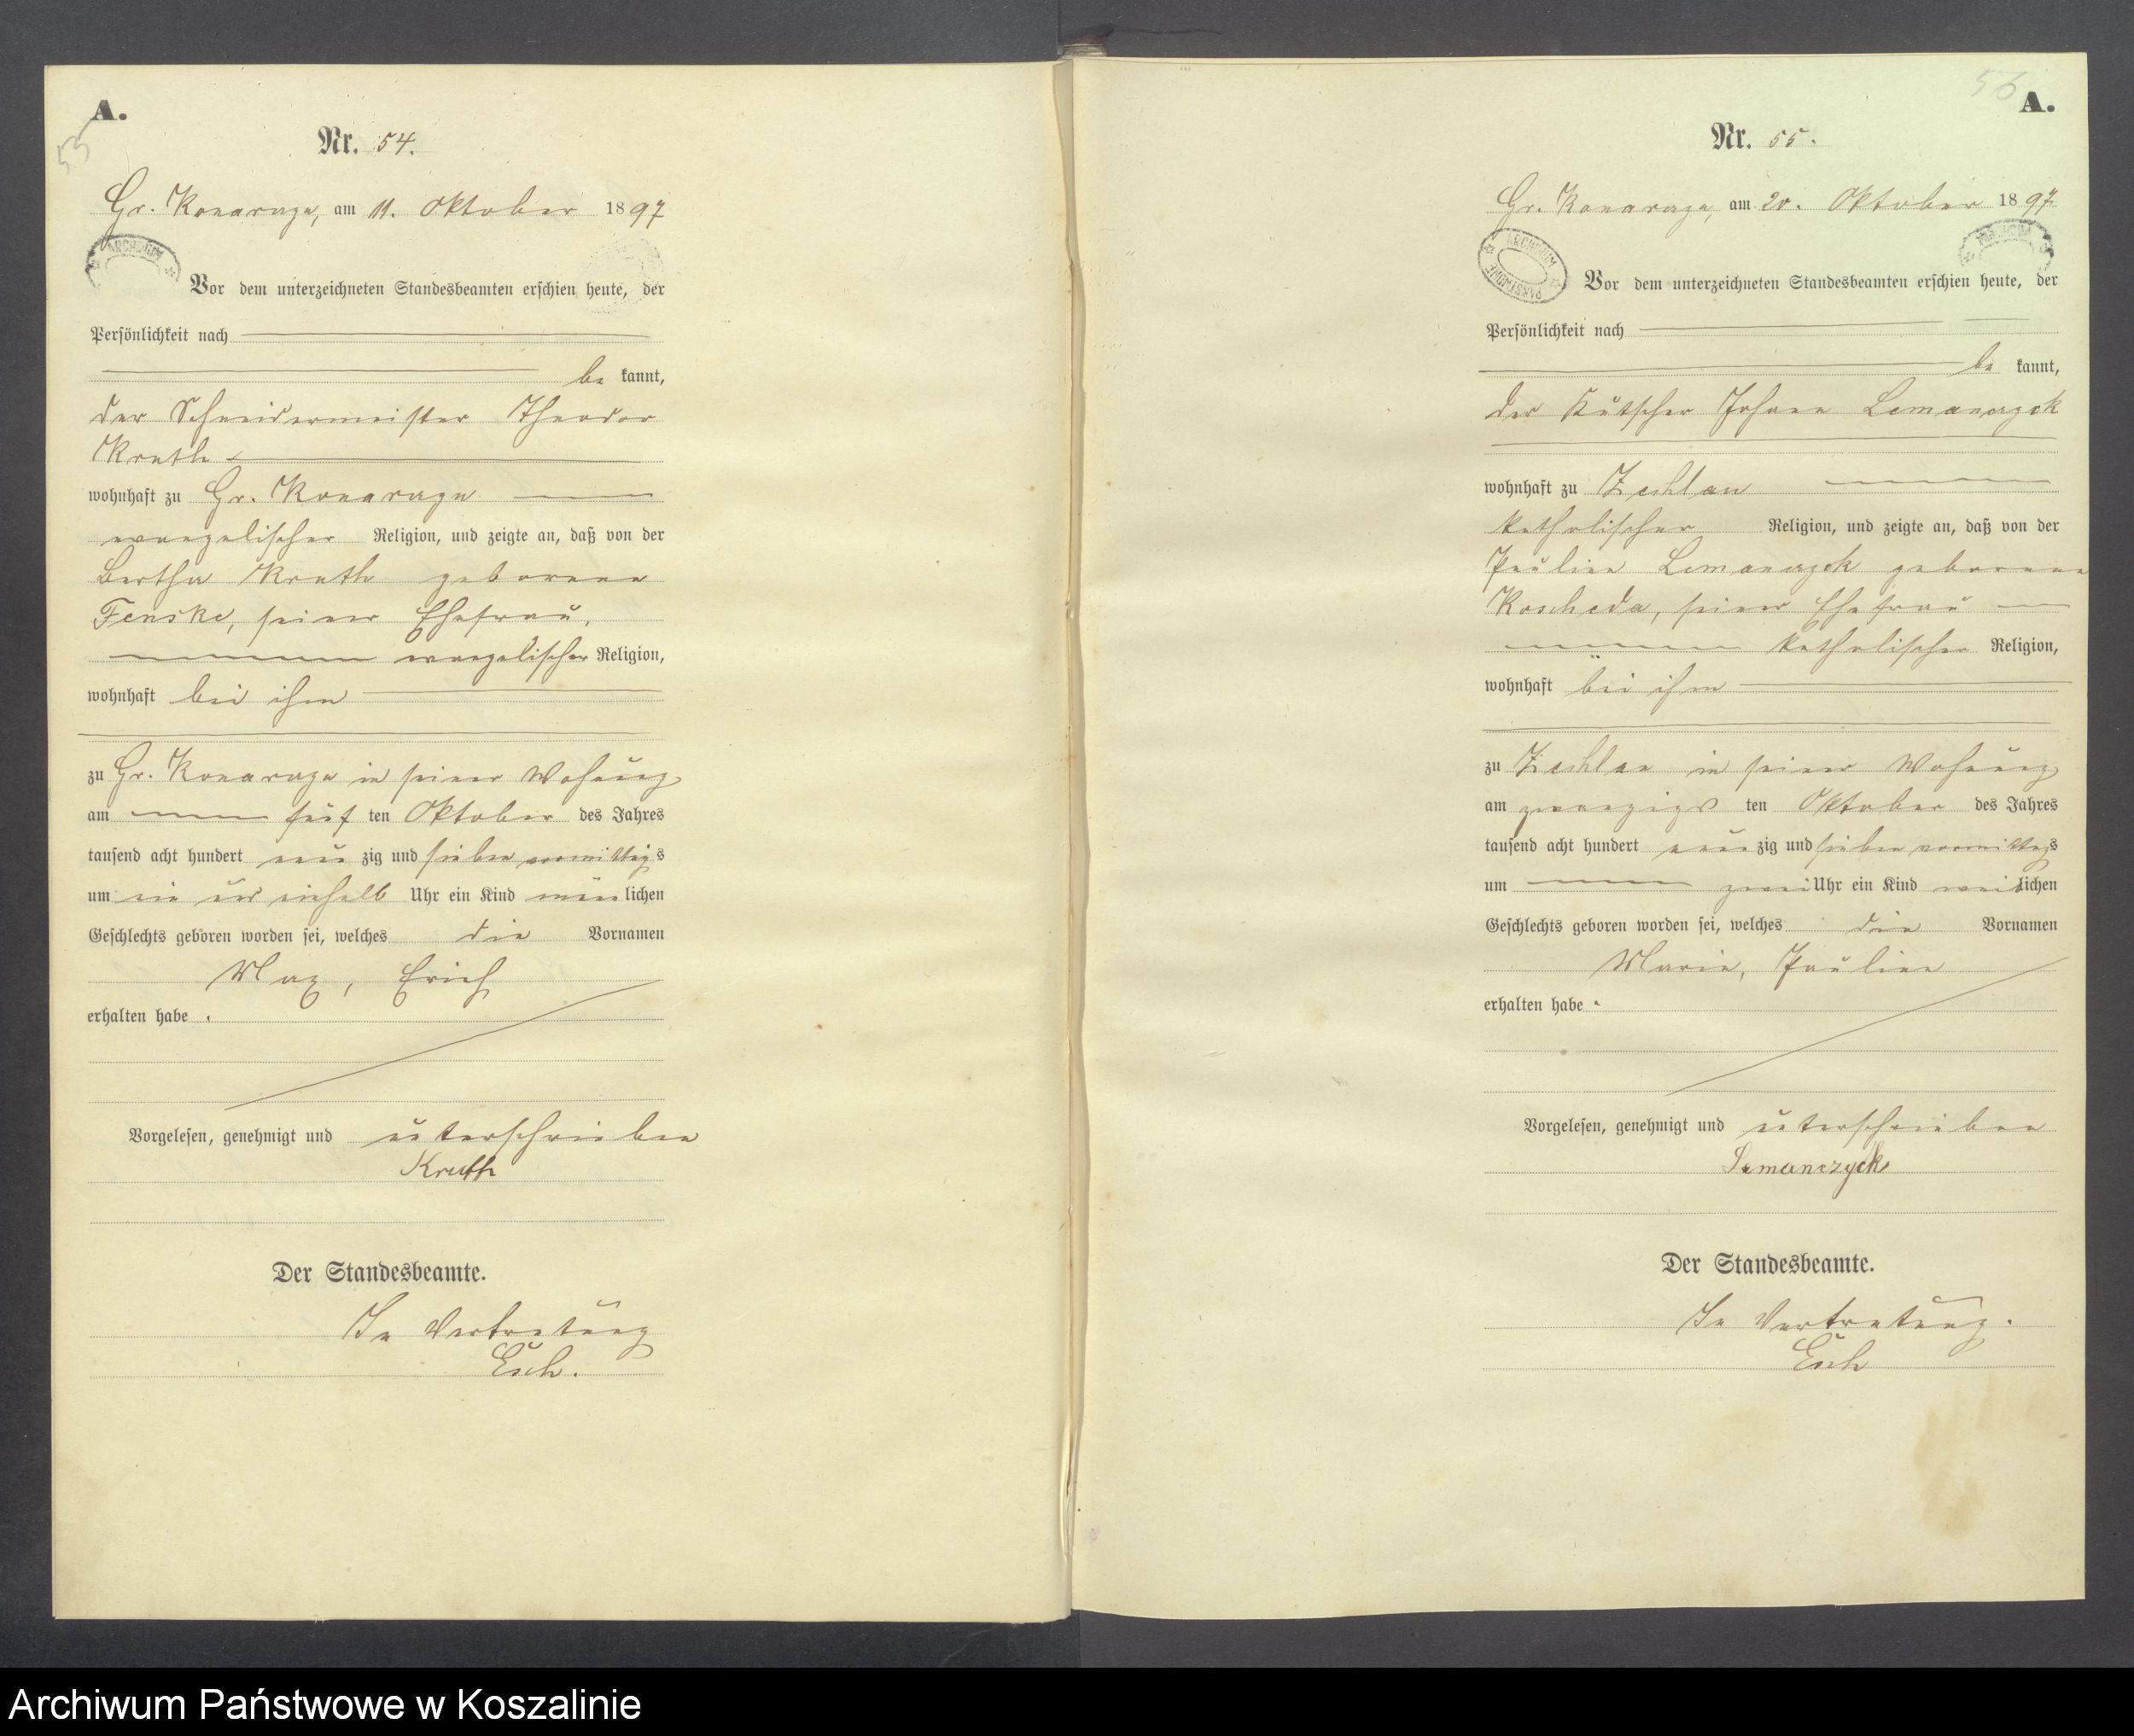 A.
55
Nr. 54.
Gr. Konarzyn, am 11. Oktober 1897
ARCHIWUM
Vor dem unterzeichneten Standesbeamten erschien heute, der
Persönlichkeit nach
be kannt,
der Schneidermeister Theodor
Kruth
wohnhaft zu Gr. Konarzyn
evangelischer Religion, und zeigte an, daß von der
Bertha Kruth geborene
Fenske, seiner Ehefrau,
evangelischer Religion,
wohnhaft bei ihm
zu Gr. Konarzyn in seiner Wohnung
am fünf ten Oktober des Jahres
tausend acht hundert neun zig und sieben vormittags
um ein und einhalb Uhr ein Kind männlichen
Geschlechts geboren worden sei, welches die Vornamen
Max, Erich
erhalten habe .
Vorgelesen, genehmigt und unterschrieben
Kruth
Der Standesbeamte.
In Vertretung
Esch.
56
A.
Nr. 55.
Gr. Konarzyn, am 20. Oktober 1897
ARCHIWUM PAŃSTWOWE
Vor dem unterzeichneten Standesbeamten erschien heute, der
Persönlichkeit nach
be kannt,
der Kutscher Johann Lemanczyk
wohnhaft zu Zechlau
katholischer Religion, und zeigte an, daß von der
Pauline Lemanczyk geborene
Koscheda, seiner Ehefrau
katholischer Religion,
wohnhaft bei ihm
zu Zechlau in seiner Wohnung
am zwanzigs ten Oktober des Jahres
tausend acht hundert neun zig und sieben vormittags
um zwei Uhr ein Kind weiblichen
Geschlechts geboren worden sei, welches die Vornamen
Marie, Pauline
erhalten habe .
Vorgelesen, genehmigt und unterschrieben
Lemanczyck
Der Standesbeamte.
In Vertretung.
Esch
Archiwum Państwowe w Koszalinie